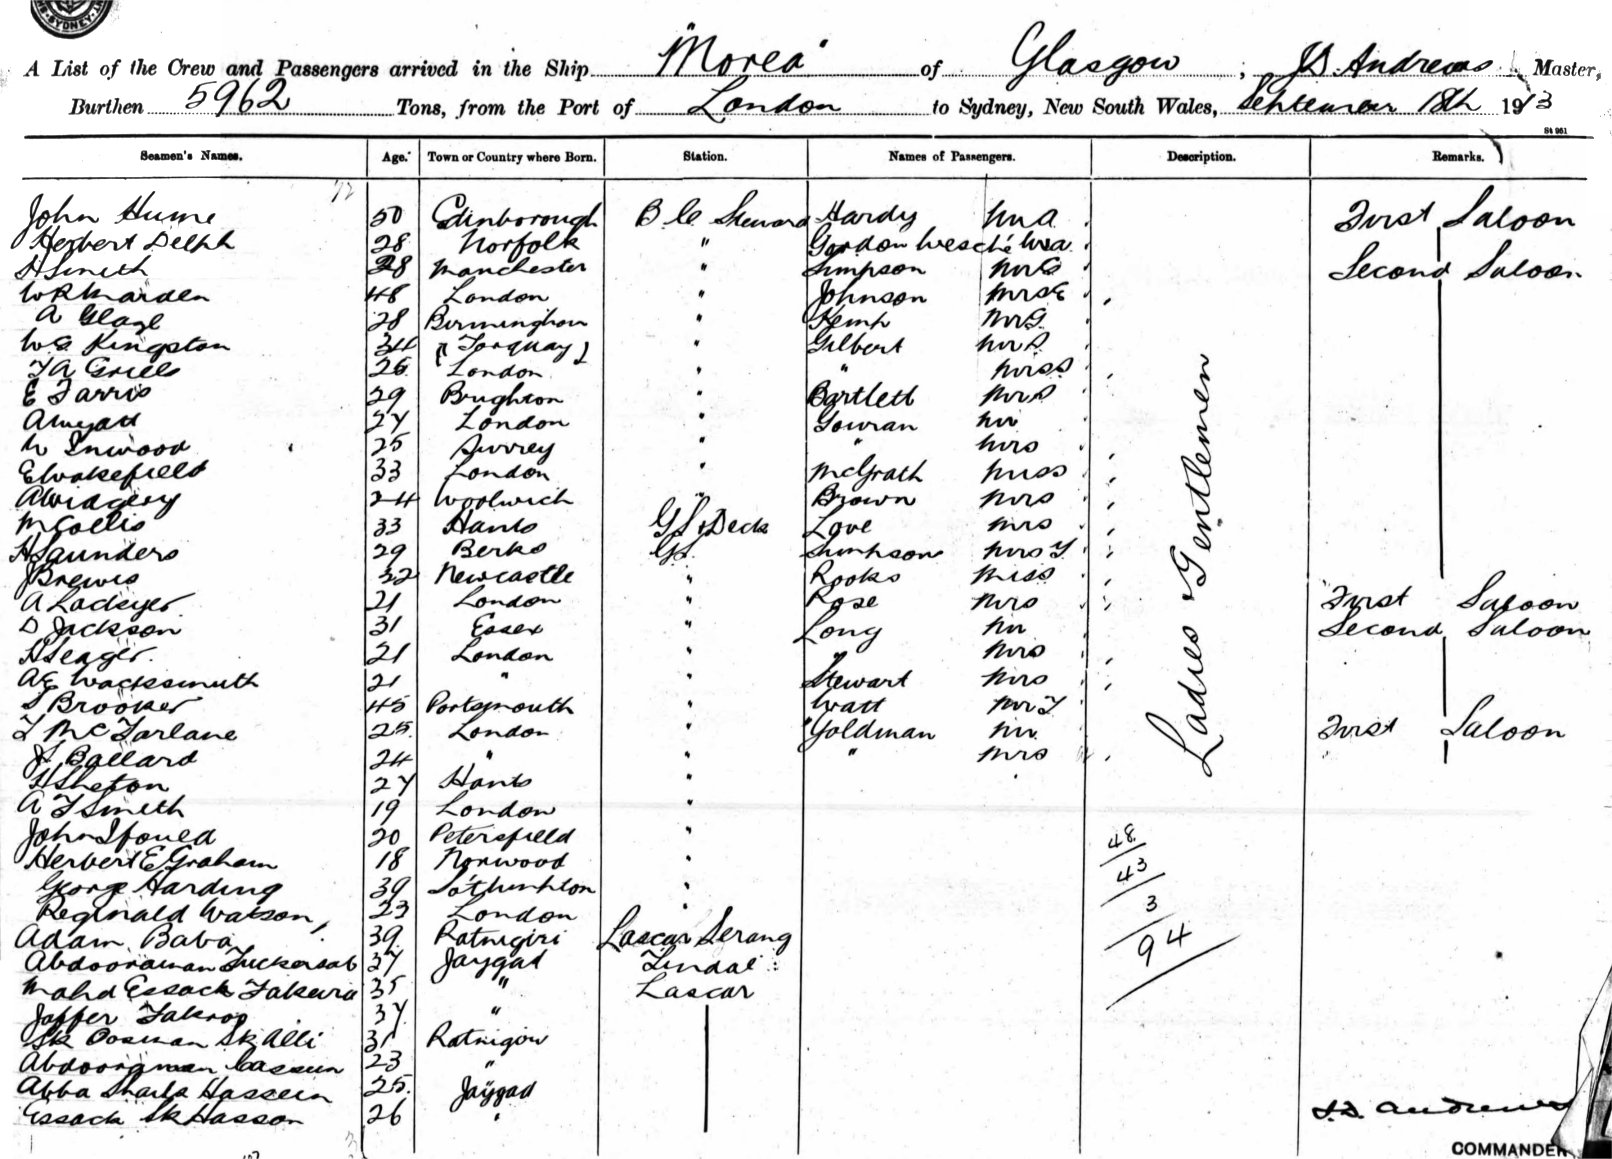 SYDNEY
A List of the Crew and Passengers arrived in the Ship "Morea" of Glasgow, J.D. Andrews Master,
Burthen 5962 Tons, from the Port of London to Sydney, New South Wales, September 18th 1913
St 951
Seamen's Names. Age. Town or Country where Born. Station. Names of Passengers. Description. Remarks.
72
John Hume 50 Edinborough B Cl Steward Hardy Mr A First Saloon
Herbert Delph 28 Norfolk " Gordon
H Smith 28 Manchester " Simpson Mr G Second Saloon
W R Marden 48 London " Johnson Mrs E
A Glaze 28 Birmingham " Kemp Mr G
W G Kingston 34 { Torquay } " Gilbert Mr S
26 London " " Mrs S
E Farris 29 Brighton " Bartlett Mr S
A Wyatt 27 London " Gowran Mr
W Inwood 25 Surrey " " Mrs
E Wakefield 33 London " McGrath Miss
A Widgery 24 Woolwich " Brown Mrs
M Collis 33 Hants G S & Deck Love Mrs
H Saunders 29 Berks G S. Simpson Mrs T
J Brewis 32 Newcastle " Rooks Miss
A Lockyer 21 London " Rose Mrs First Saloon
D Jackson 31 Essex " Long Mr Second Saloon
H Seager. 21 London " " Mrs
A E Wacksmuth 21 " " Stewart Mrs
S Brooker 45 Portsmouth " Watt Mr T
T McFarlane 25 London " Goldman Mr First Saloon
J Ballard 24 " " " Mrs
H Shefton 27 Hants "
A T Smith 19 London "
John 20 Petersfield "
Herbert E Graham 18 Norwood "
George Harding 39 So'thmpton "
Reginald Watson, 23 London "
Adam Baba 39 Ratnigiri Lascar Serang
Abdooraman Tuckersab 37 Jaygad Tindal
Mahd Essack Fakira 35 " Lascar
Jaffer 37 "
Sk Oosman Sk Alli 31 Ratnigiri
Abdooraman Cassim 23 "
Abba Shaik Hassein 25 Jaygad
Essack Sk Hasson 26 "
Ladies & Gentlemen
48
43
3
94
J.D. Andrews
COMMANDER